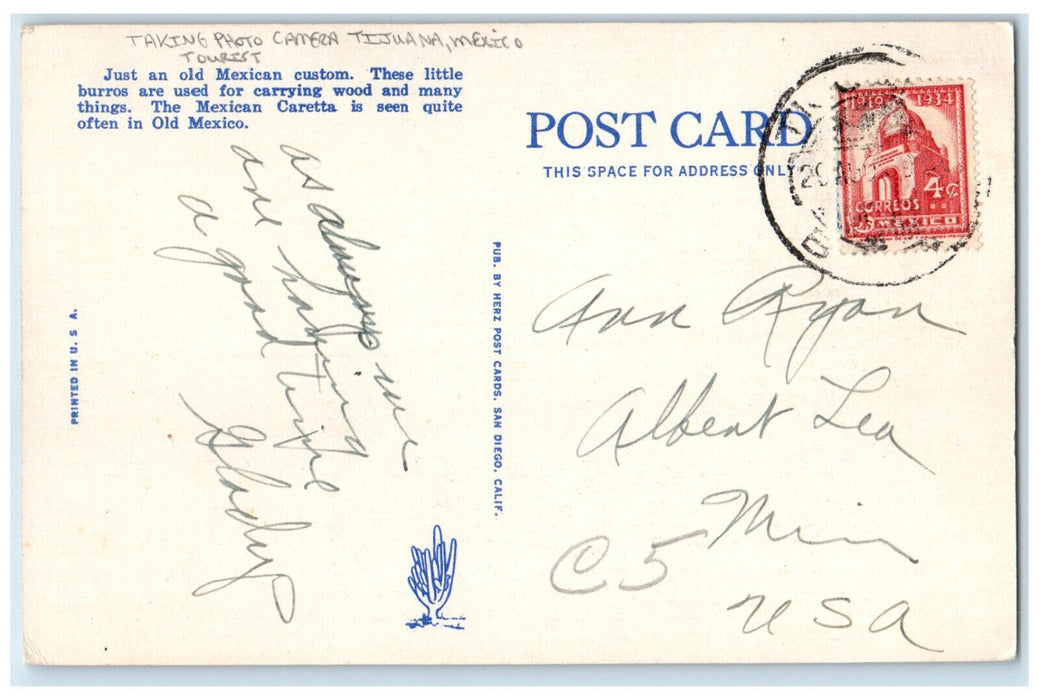 TAKING PHOTO CAMERA TIJUANA, MEXICO
TOURIST
Just an old Mexican custom. These little
burros are used for carrying wood and many
things. The Mexican Caretta is seen quite
often in Old Mexico.
POST CARD
THIS SPACE FOR ADDRESS ONLY
1934
4¢
CORREOS
MEXICO
as always we
are having
a good time
Gladys
PRINTED IN U. S. A.
PUB. BY HERZ POST CARDS, SAN DIEGO, CALIF.
Ann Ryan
Albert Lea
Minn
C5
USA